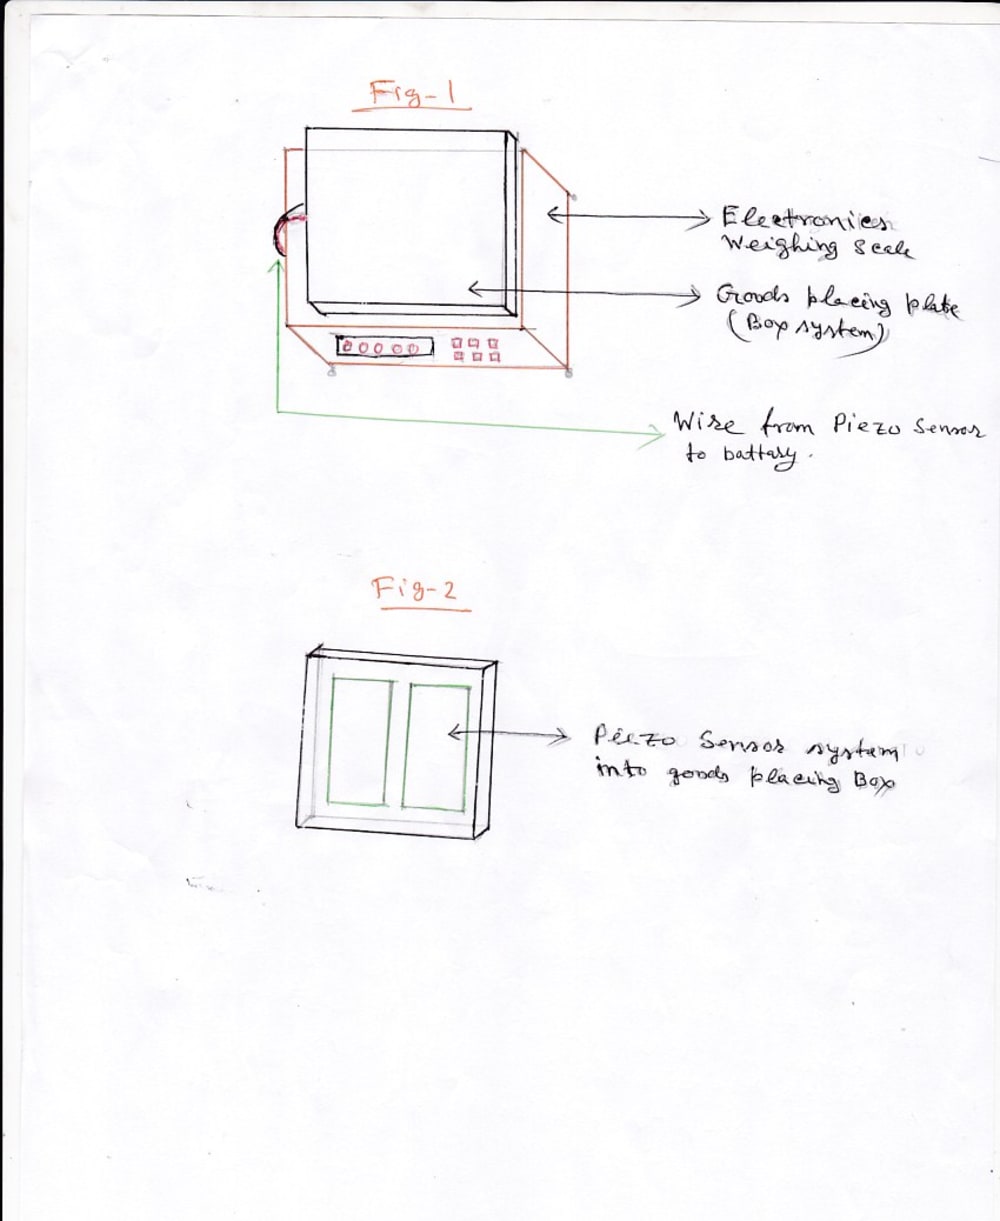 Fig-1
Electronics
Weighing Scale
Goods placing plate
(Box system)
00000
Wire from Piezo Sensor
to battary.
Fig-2
Piezo Sensor system
into goods placing Box